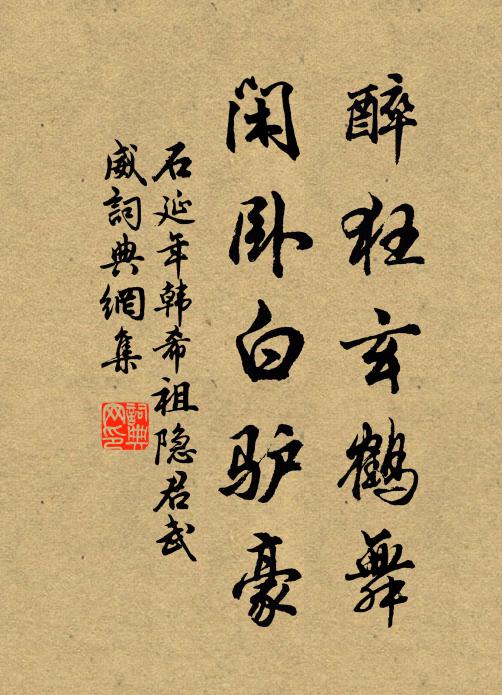 醉狂玄鹤舞
闲卧白驴豪
石延年韩希祖隐君武
威詞典網集
詞典网印